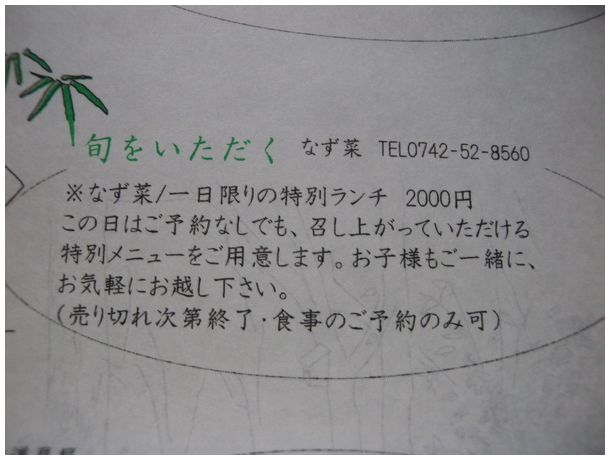 旬をいただく なず菜 TEL0742-52-8560
※なず菜/一日限りの特別ランチ 2000円
この日はご予約なしでも、召し上がっていただける
特別メニューをご用意します。お子様もご一緒に、
お気軽にお越し下さい。
(売り切れ次第終了・食事のご予約のみ可)